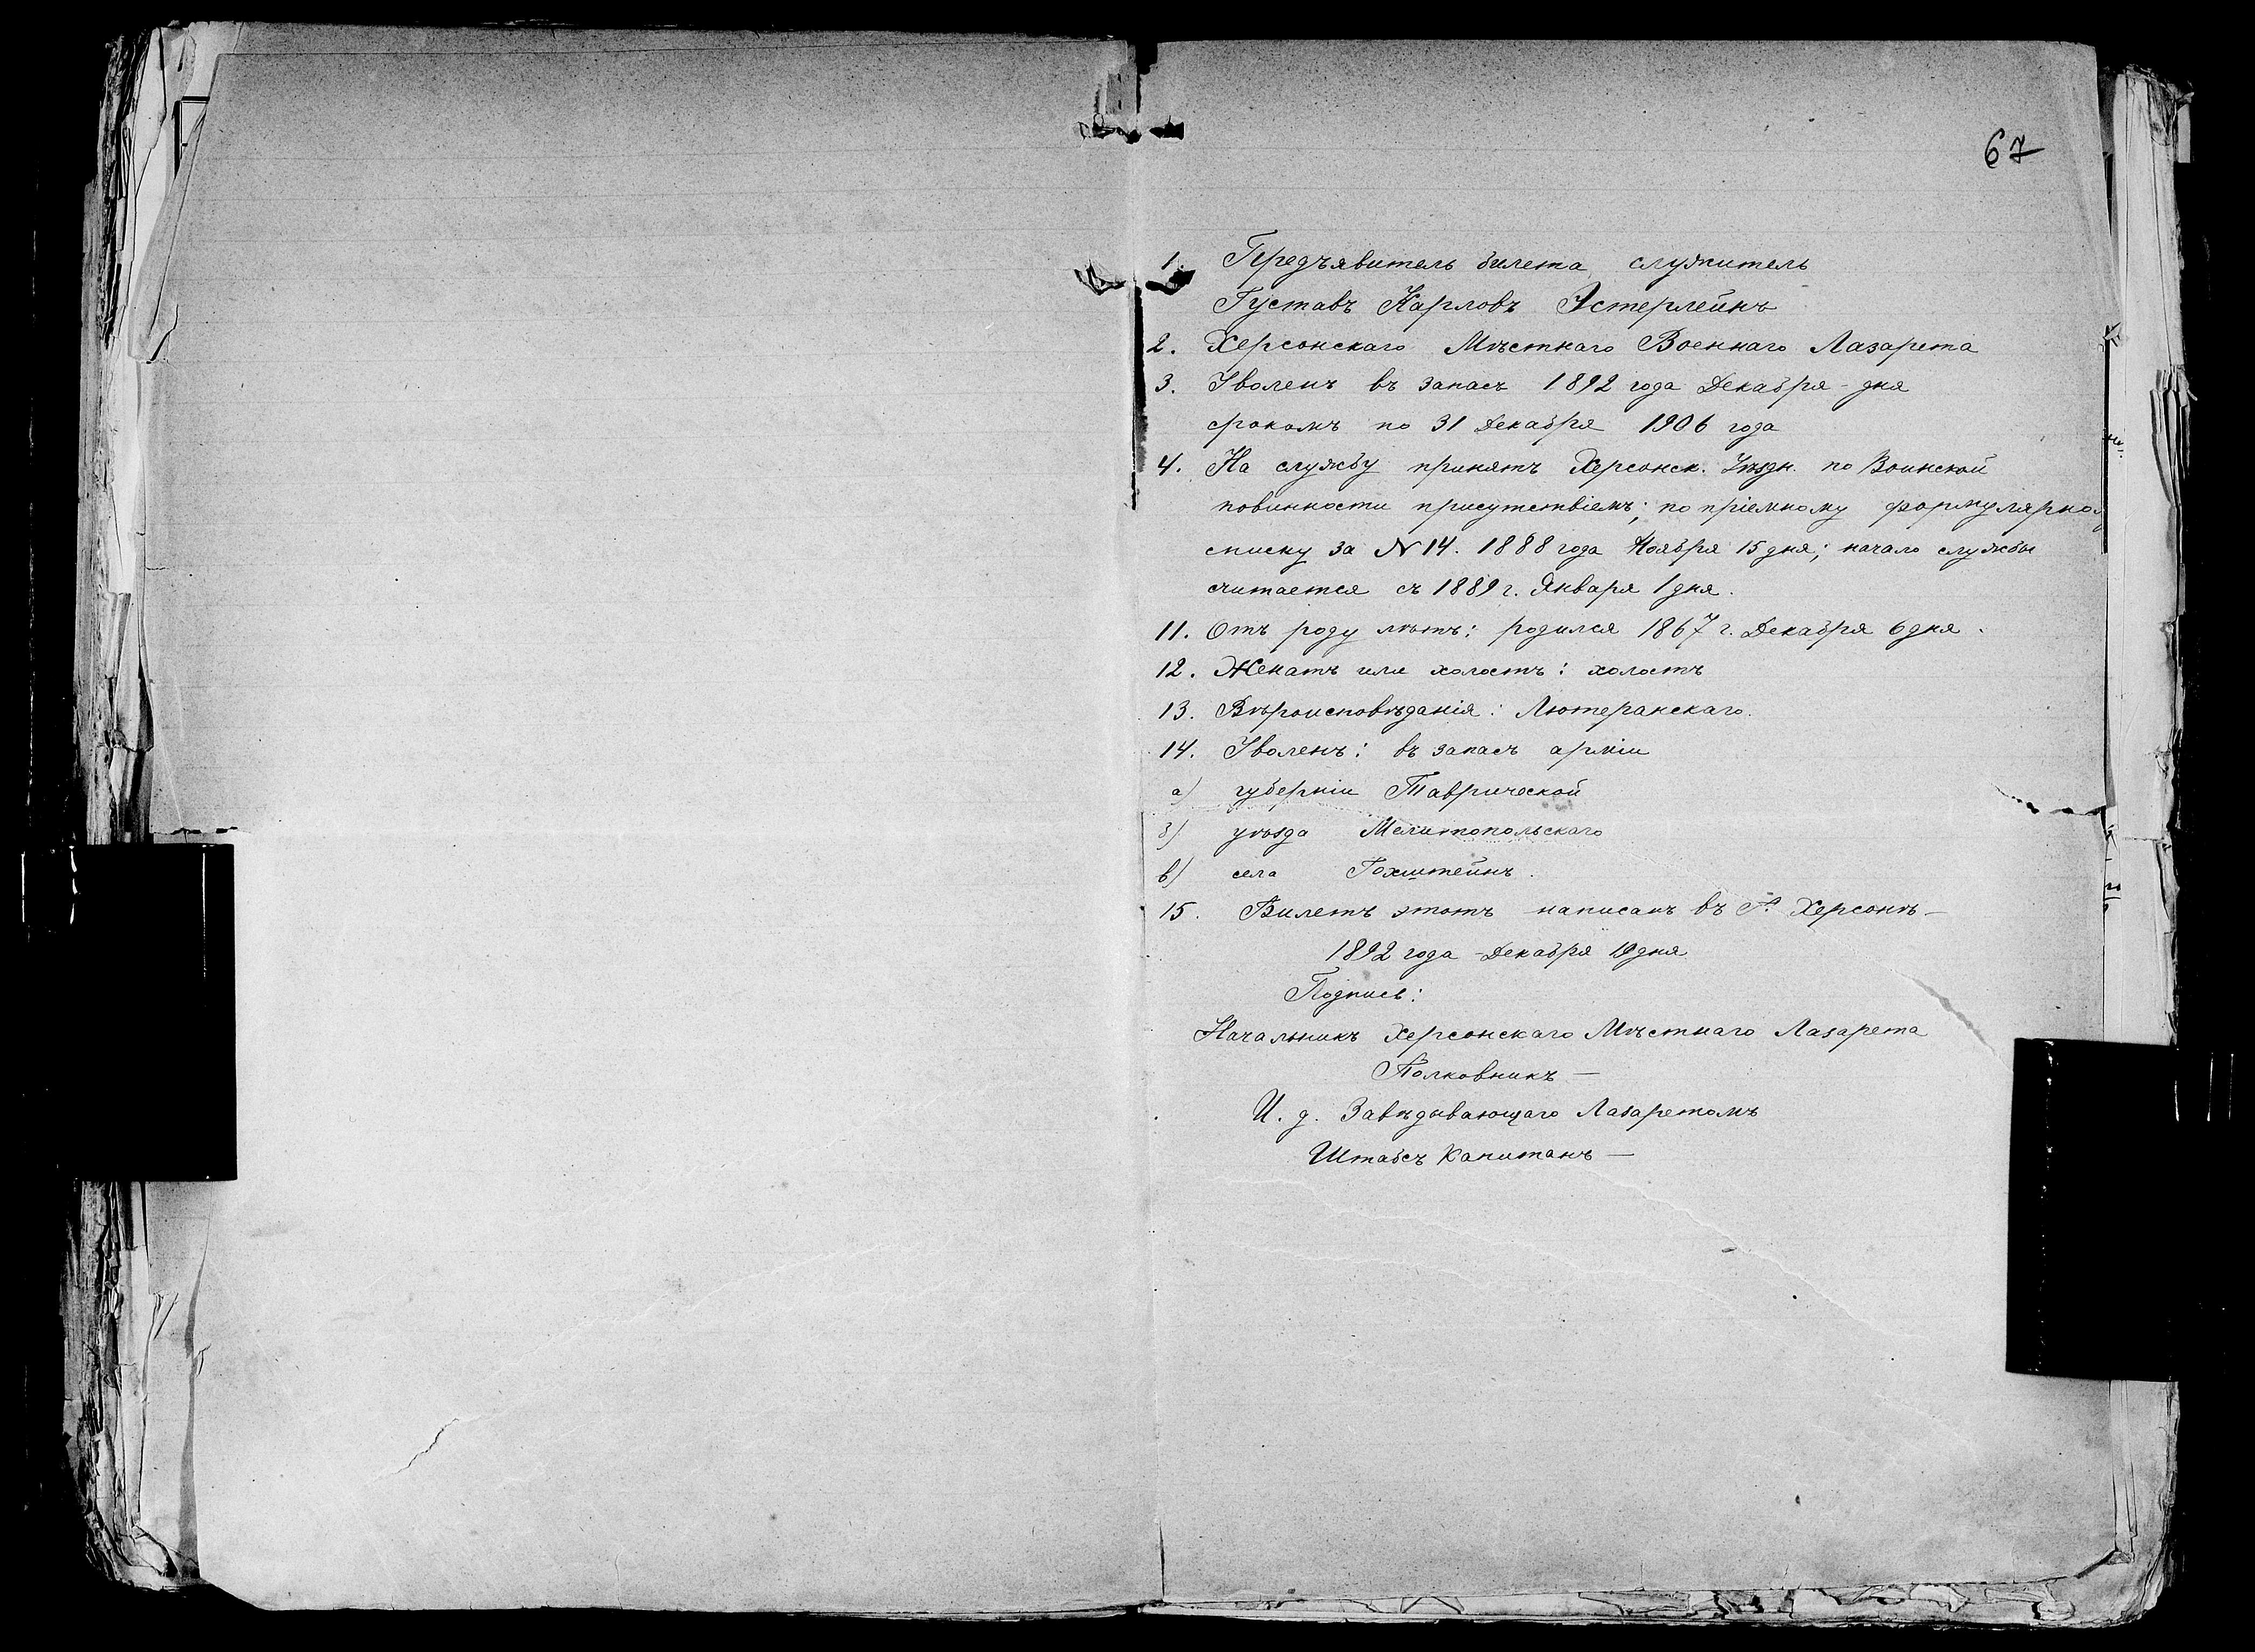 67
1. Предъявитель билета служитель
Густавъ Карловъ Эстерлейнъ
2. Херсонскаго Мѣстнаго Военнаго Лазарета
3. Уволенъ въ запасъ 1892 года Декабря - дня
срокомъ по 31 Декабря 1906 года
4. На службу принятъ Херсонск. Уѣздн. по Воинской
повинности присутствіемъ; по пріемному формулярно
списку за № 14. 1888 года Ноября 15 дня; начало службы
считается съ 1889 г. Января 1 дня.
11. Отъ роду лѣтъ: родился 1867 г. Декабря 6 дня.
12. Женатъ или холостъ: холостъ
13. Вѣроисповѣданія: Лютеранскаго.
14. Уволенъ: въ запасъ арміи
а) губерніи Таврической
б) уѣзда Мелитопольскаго
в) села Гохштейнъ.
15. Билетъ этотъ написанъ въ г. Херсонѣ —
1892 года - Декабря 19 дня
Подписъ:
Начальникъ Херсонскаго Мѣстнаго Лазарета
Полковникъ —
И. д. Завѣдывающаго Лазаретомъ
Штабсъ Капитанъ —